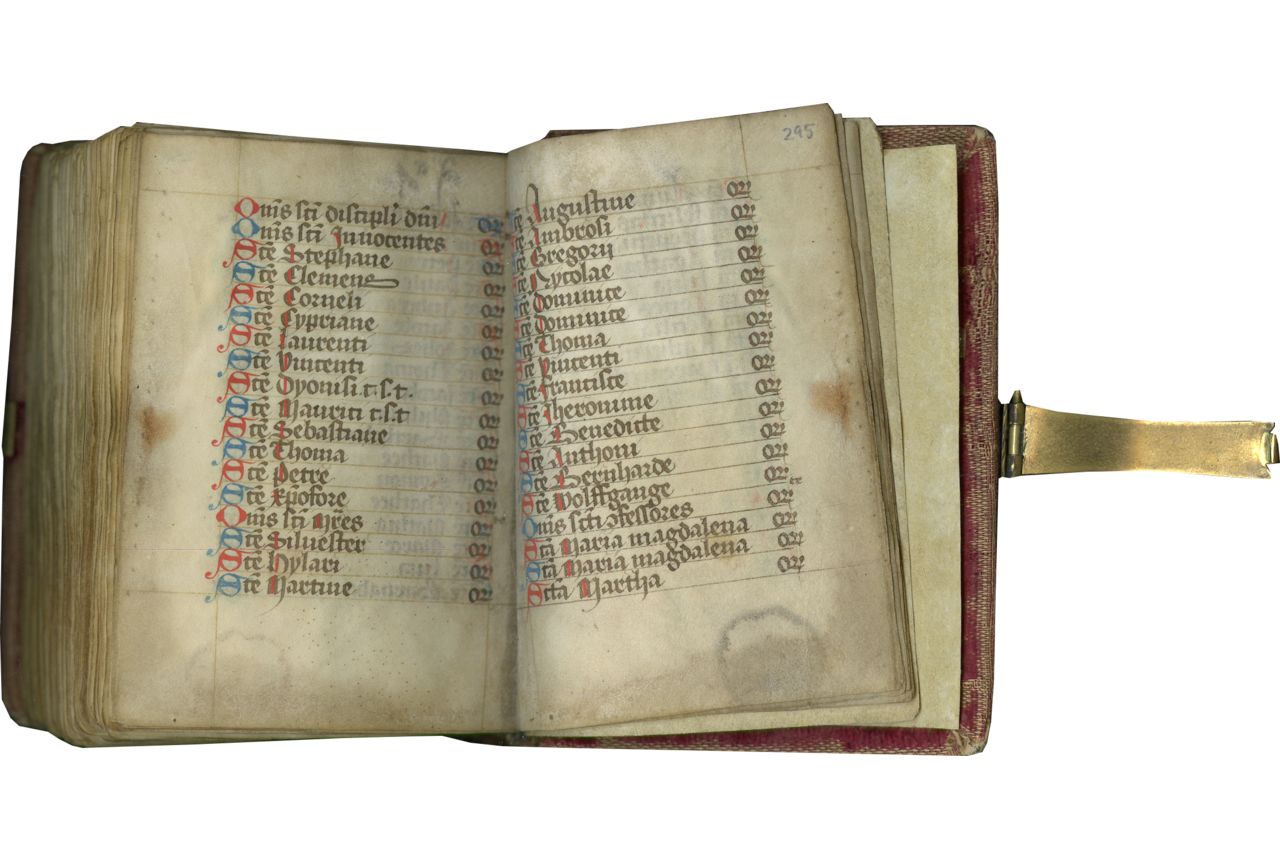 Om̅s sc̅i discipli dn̅i or
Om̅s sc̅i Innocentes or
Sc̅e Stephane or
Sc̅e Clemens or
Sc̅e Corneli or
Sc̅e Cypriane or
Sc̅e Laurenti or
Sc̅e Vincenti or
Sc̅e Dyonisi c.s.t. or
Sc̅e Mauriti c.s.t or
Sc̅e Sebastiane or
Sc̅e Thoma or
Sc̅e Petre or
Sc̅e xp̅ofore or
Om̅s sc̅i Mr̅es or
Sc̅e Siluester or
Sc̅e Hylari or
Sc̅e Martine or
295
Sc̅e Augustine or
Sc̅e Ambrosi or
Sc̅e Gregorij or
Sc̅e Nycolae or
Sc̅e Dominice or
Sc̅e Dominice or
Sc̅e Thoma or
Sc̅e Vincenti or
Sc̅e Francisce or
Sc̅e Iheronime or
Sc̅e Benedicte or
Sc̅e Anthoni or
Sc̅e Bernharde or
Sc̅e Wolffgange or
Om̅s sc̅ti ꝯfessores or
Sc̅ta Maria magdalena or
Sc̅ta Maria magdalena or
Sc̅ta Martha or